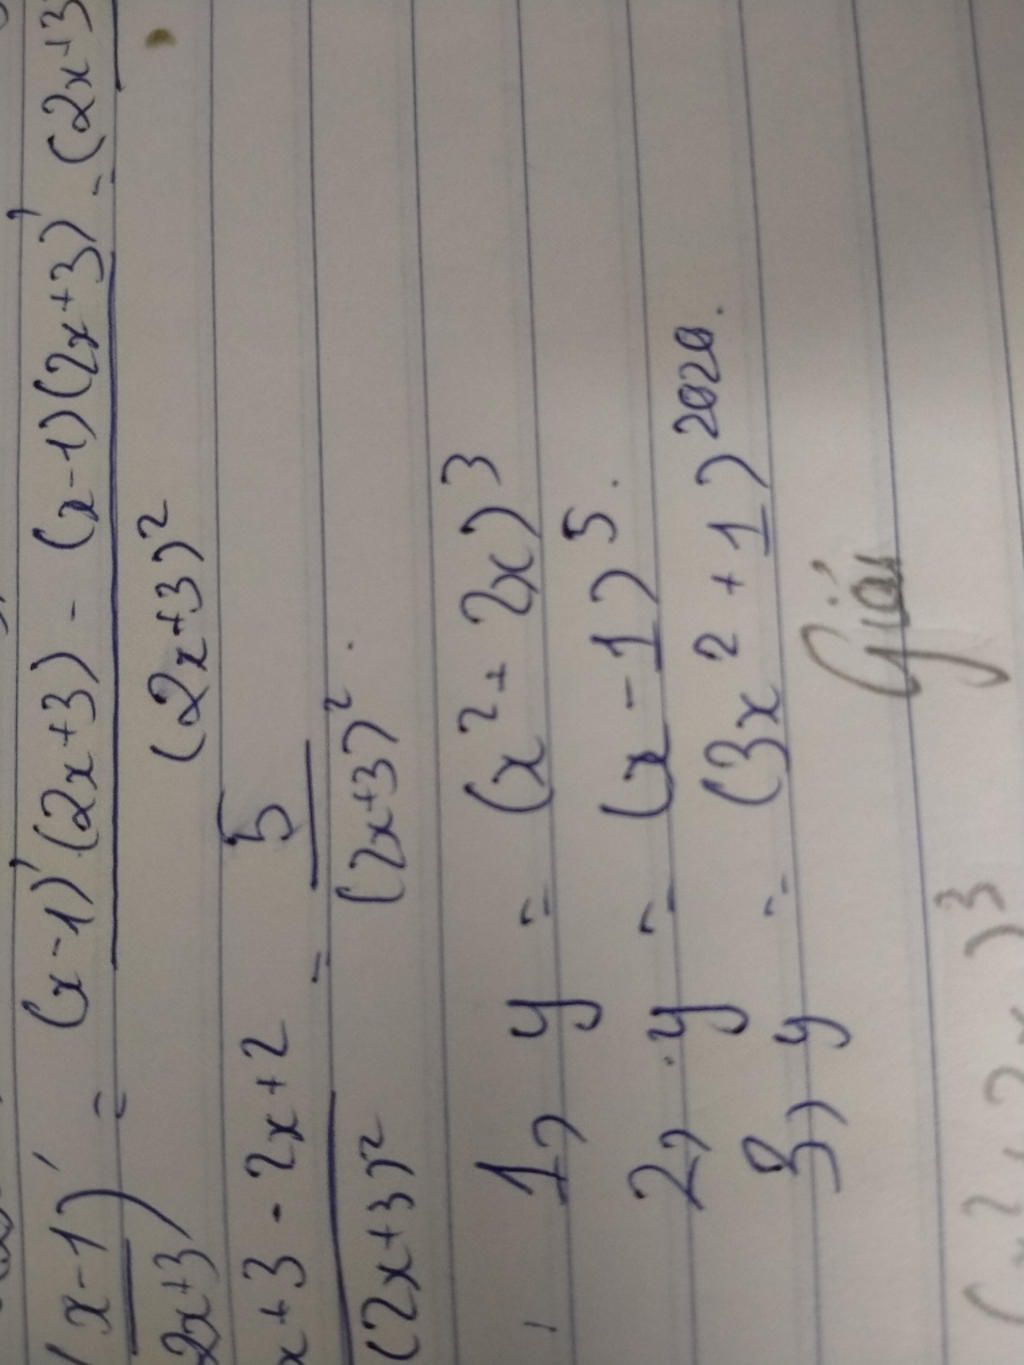 (x-1)' = (x-1)'(2x+3) - (x-1)(2x+3)' = (2x+3
2x+3) (2x+3)²
x+3-2x+2 = 5
(2x+3)² (2x+3)².
1, y = (x²+2x)³
2, y = (x-1)⁵.
3, y = (3x²+1)²⁰²⁰.
Giải
)³